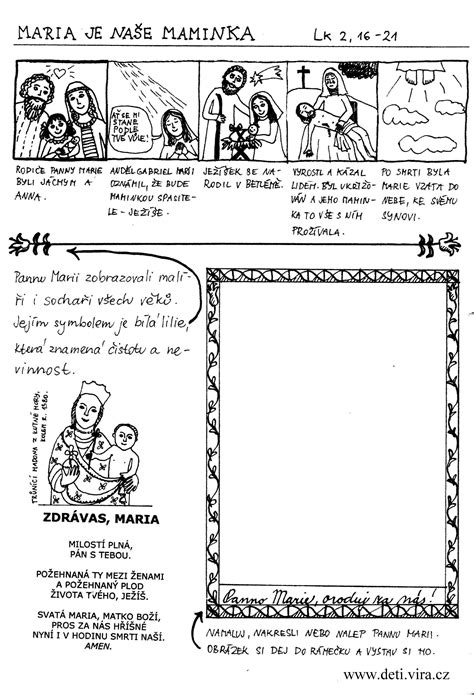 MARIA JE NAŠE MAMINKA
LK 2, 16-21
AŤ SE MI
STANE
PODLE
TVÉ VŮLE!
RODIČE PANNY MARIE
BYLI JÁCHYM A
ANNA.
ANDĚL GABRIEL MARII
OZNÁMIL, ŽE BUDE
MAMINKOU SPASITE-
LE - JEŽÍŠE.
JEŽÍŠEK SE NA-
RODIL V BETLÉMĚ.
VYROSTL A KÁZAL
LIDEM. BYL UKŘIŽO-
VÁN A JEHO MAMIN-
KA TO VŠE S NÍM
PROŽÍVALA.
PO SMRTI BYLA
MARIE VZATA DO
NEBE, KE SVÉMU
SYNOVI.
Pannu Marii zobrazovali malí-
ři i sochaři všech věků.
Jejím symbolem je bílá lilie,
která znamená čistotu a ne-
vinnost.
TRŮNÍCÍ MADONA Z KUTNÉ HORY,
KOLEM R. 1380.
ZDRÁVAS, MARIA
MILOSTÍ PLNÁ,
PÁN S TEBOU.
POŽEHNANÁ TY MEZI ŽENAMI
A POŽEHNANÝ PLOD
ŽIVOTA TVÉHO, JEŽÍŠ.
SVATÁ MARIA, MATKO BOŽÍ,
PROS ZA NÁS HŘÍŠNÉ
NYNÍ I V HODINU SMRTI NAŠÍ.
AMEN.
Panno Maria, oroduj za nás!
NAMALUJ, NAKRESLI NEBO NALEP PANNU MARII.
OBRÁZEK SI DEJ DO RÁMEČKU A VYSTAV SI HO.
www.deti.vira.cz